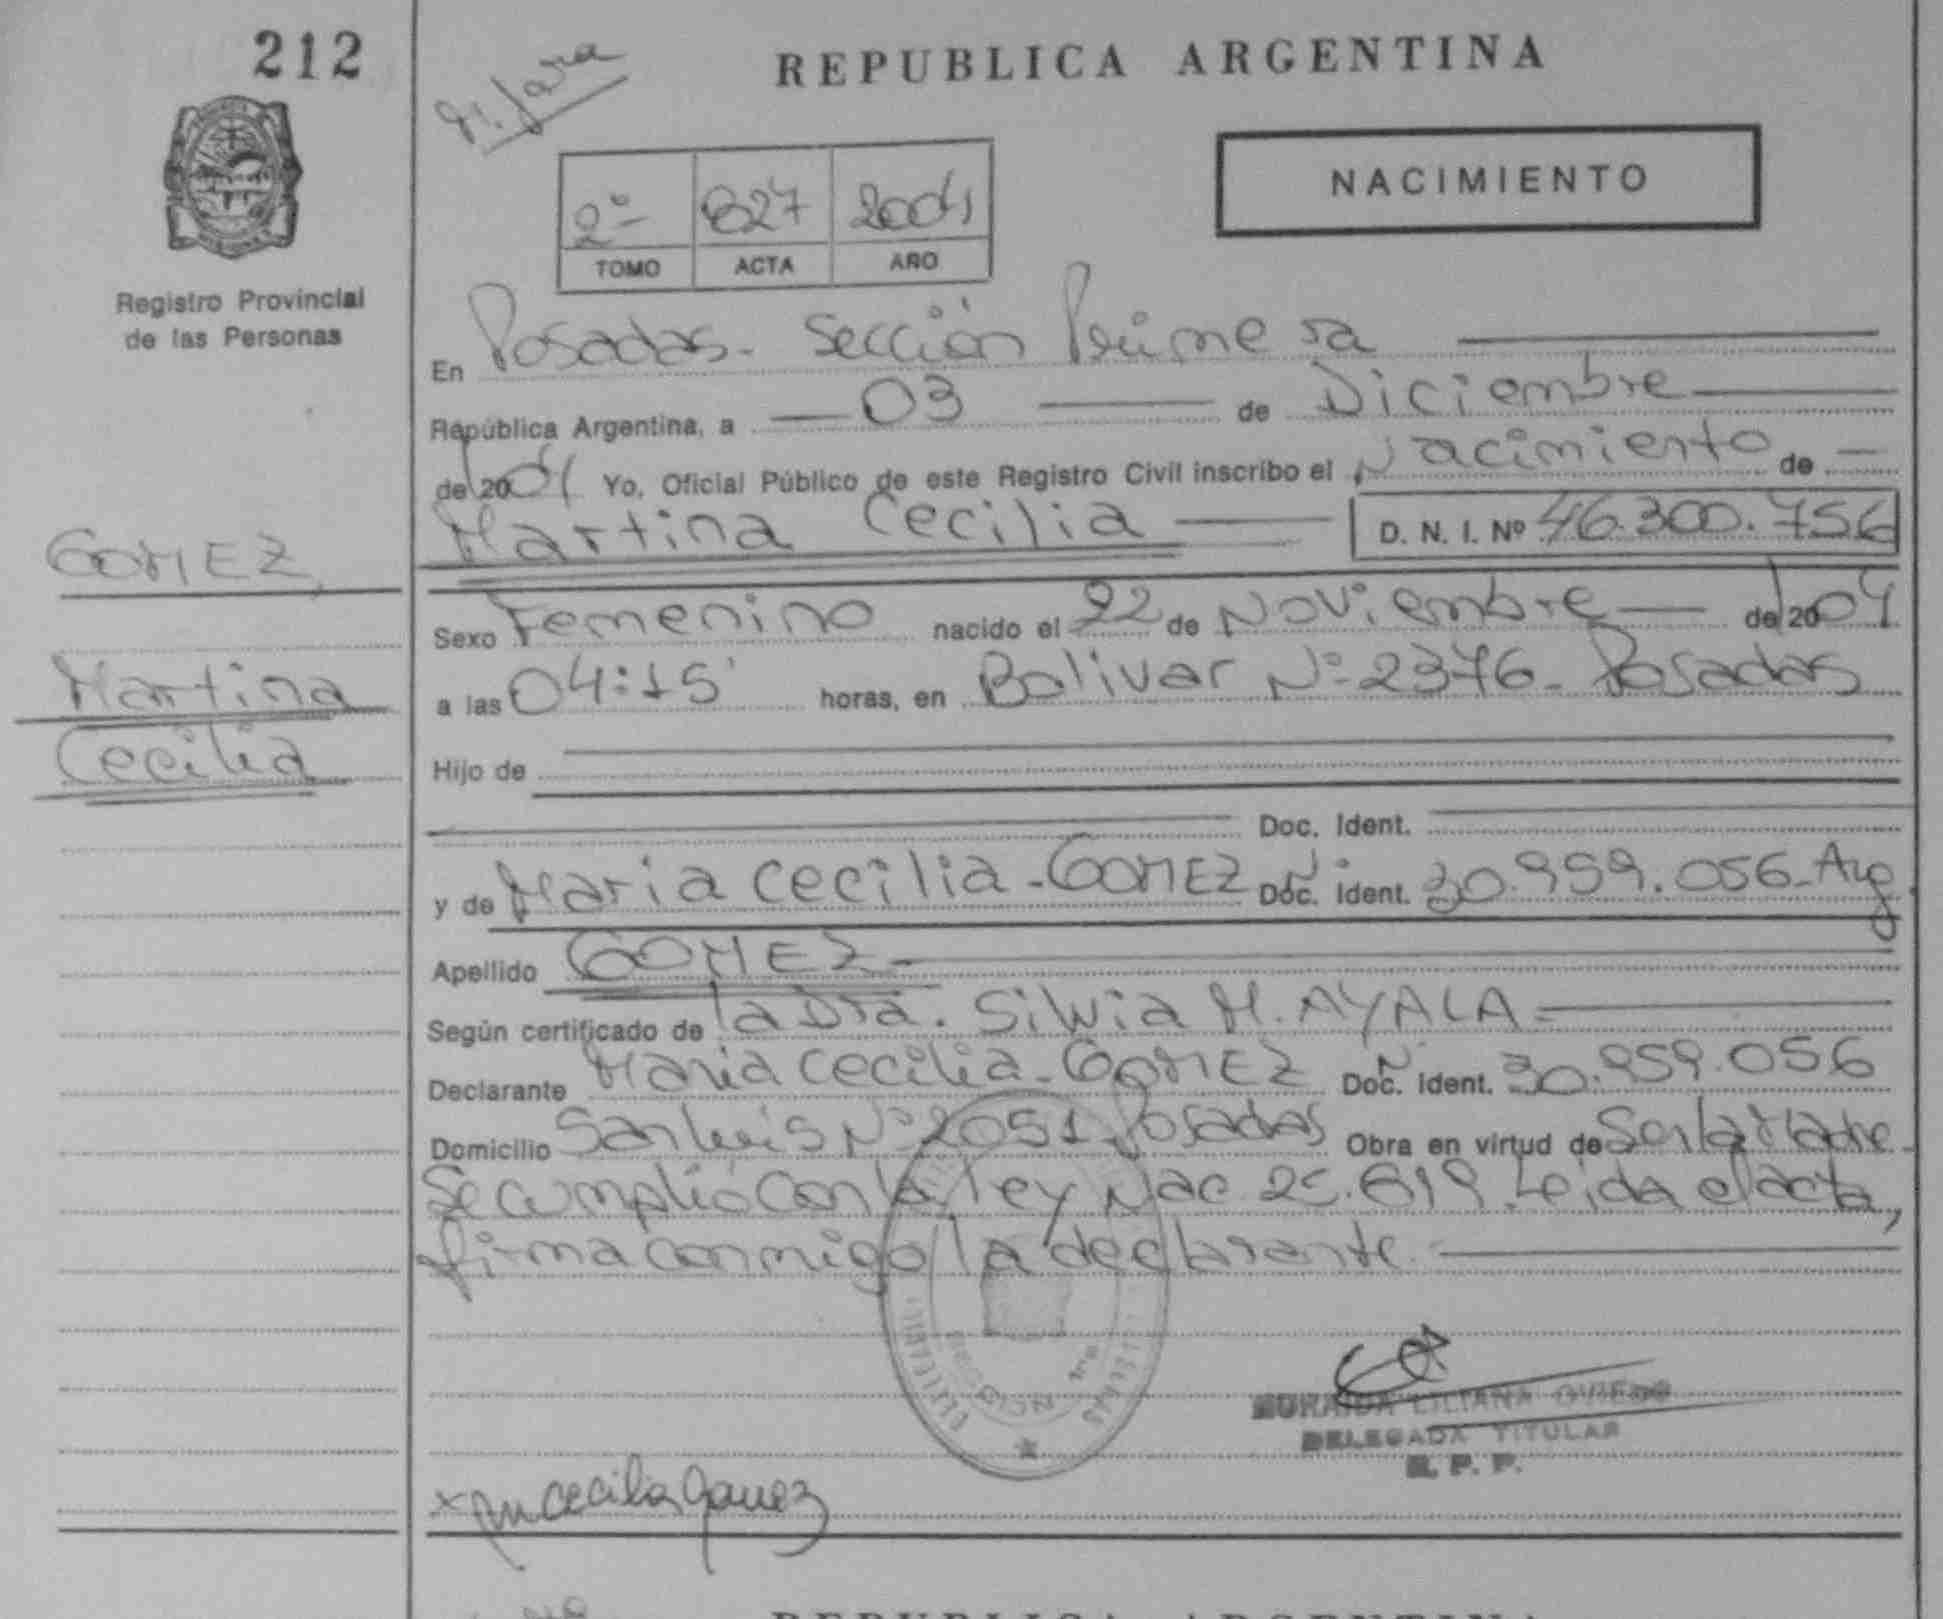 212
REPUBLICA ARGENTINA
NACIMIENTO
2º 827 2004
TOMO ACTA AÑO
Registro Provincial
de las Personas
En Posadas - Sección Primera
República Argentina, a 03 de Diciembre
del 2004 Yo, Oficial Público de este Registro Civil inscribo el Nacimiento de
Martina Cecilia D. N. I. Nº 46.300.756
GOMEZ,
Martina
Cecilia
Sexo Femenino nacido el 22 de Noviembre del 2004
a las 04:15' horas, en Bolivar Nº 2376 - Posadas
Hijo de
Doc. Ident.
y de Maria Cecilia - GOMEZ Doc. Ident. Nº 30.959.056 - Arg.
Apellido GOMEZ -
Según certificado de la Dra. Silvia M. AYALA =
Declarante Maria Cecilia - GOMEZ Doc. Ident. Nº 30.959.056
Domicilio San Luis Nº 2051 Posadas Obra en virtud de Ser la Madre -
Se cumplió con la ley Nac 25.819. Leida el acta,
firma conmigo la declarante.
LILIANA OVIEDO
DELEGADA TITULAR
R. P. P.
x M Cecilia Gomez
REPUBLICA ARGENTINA